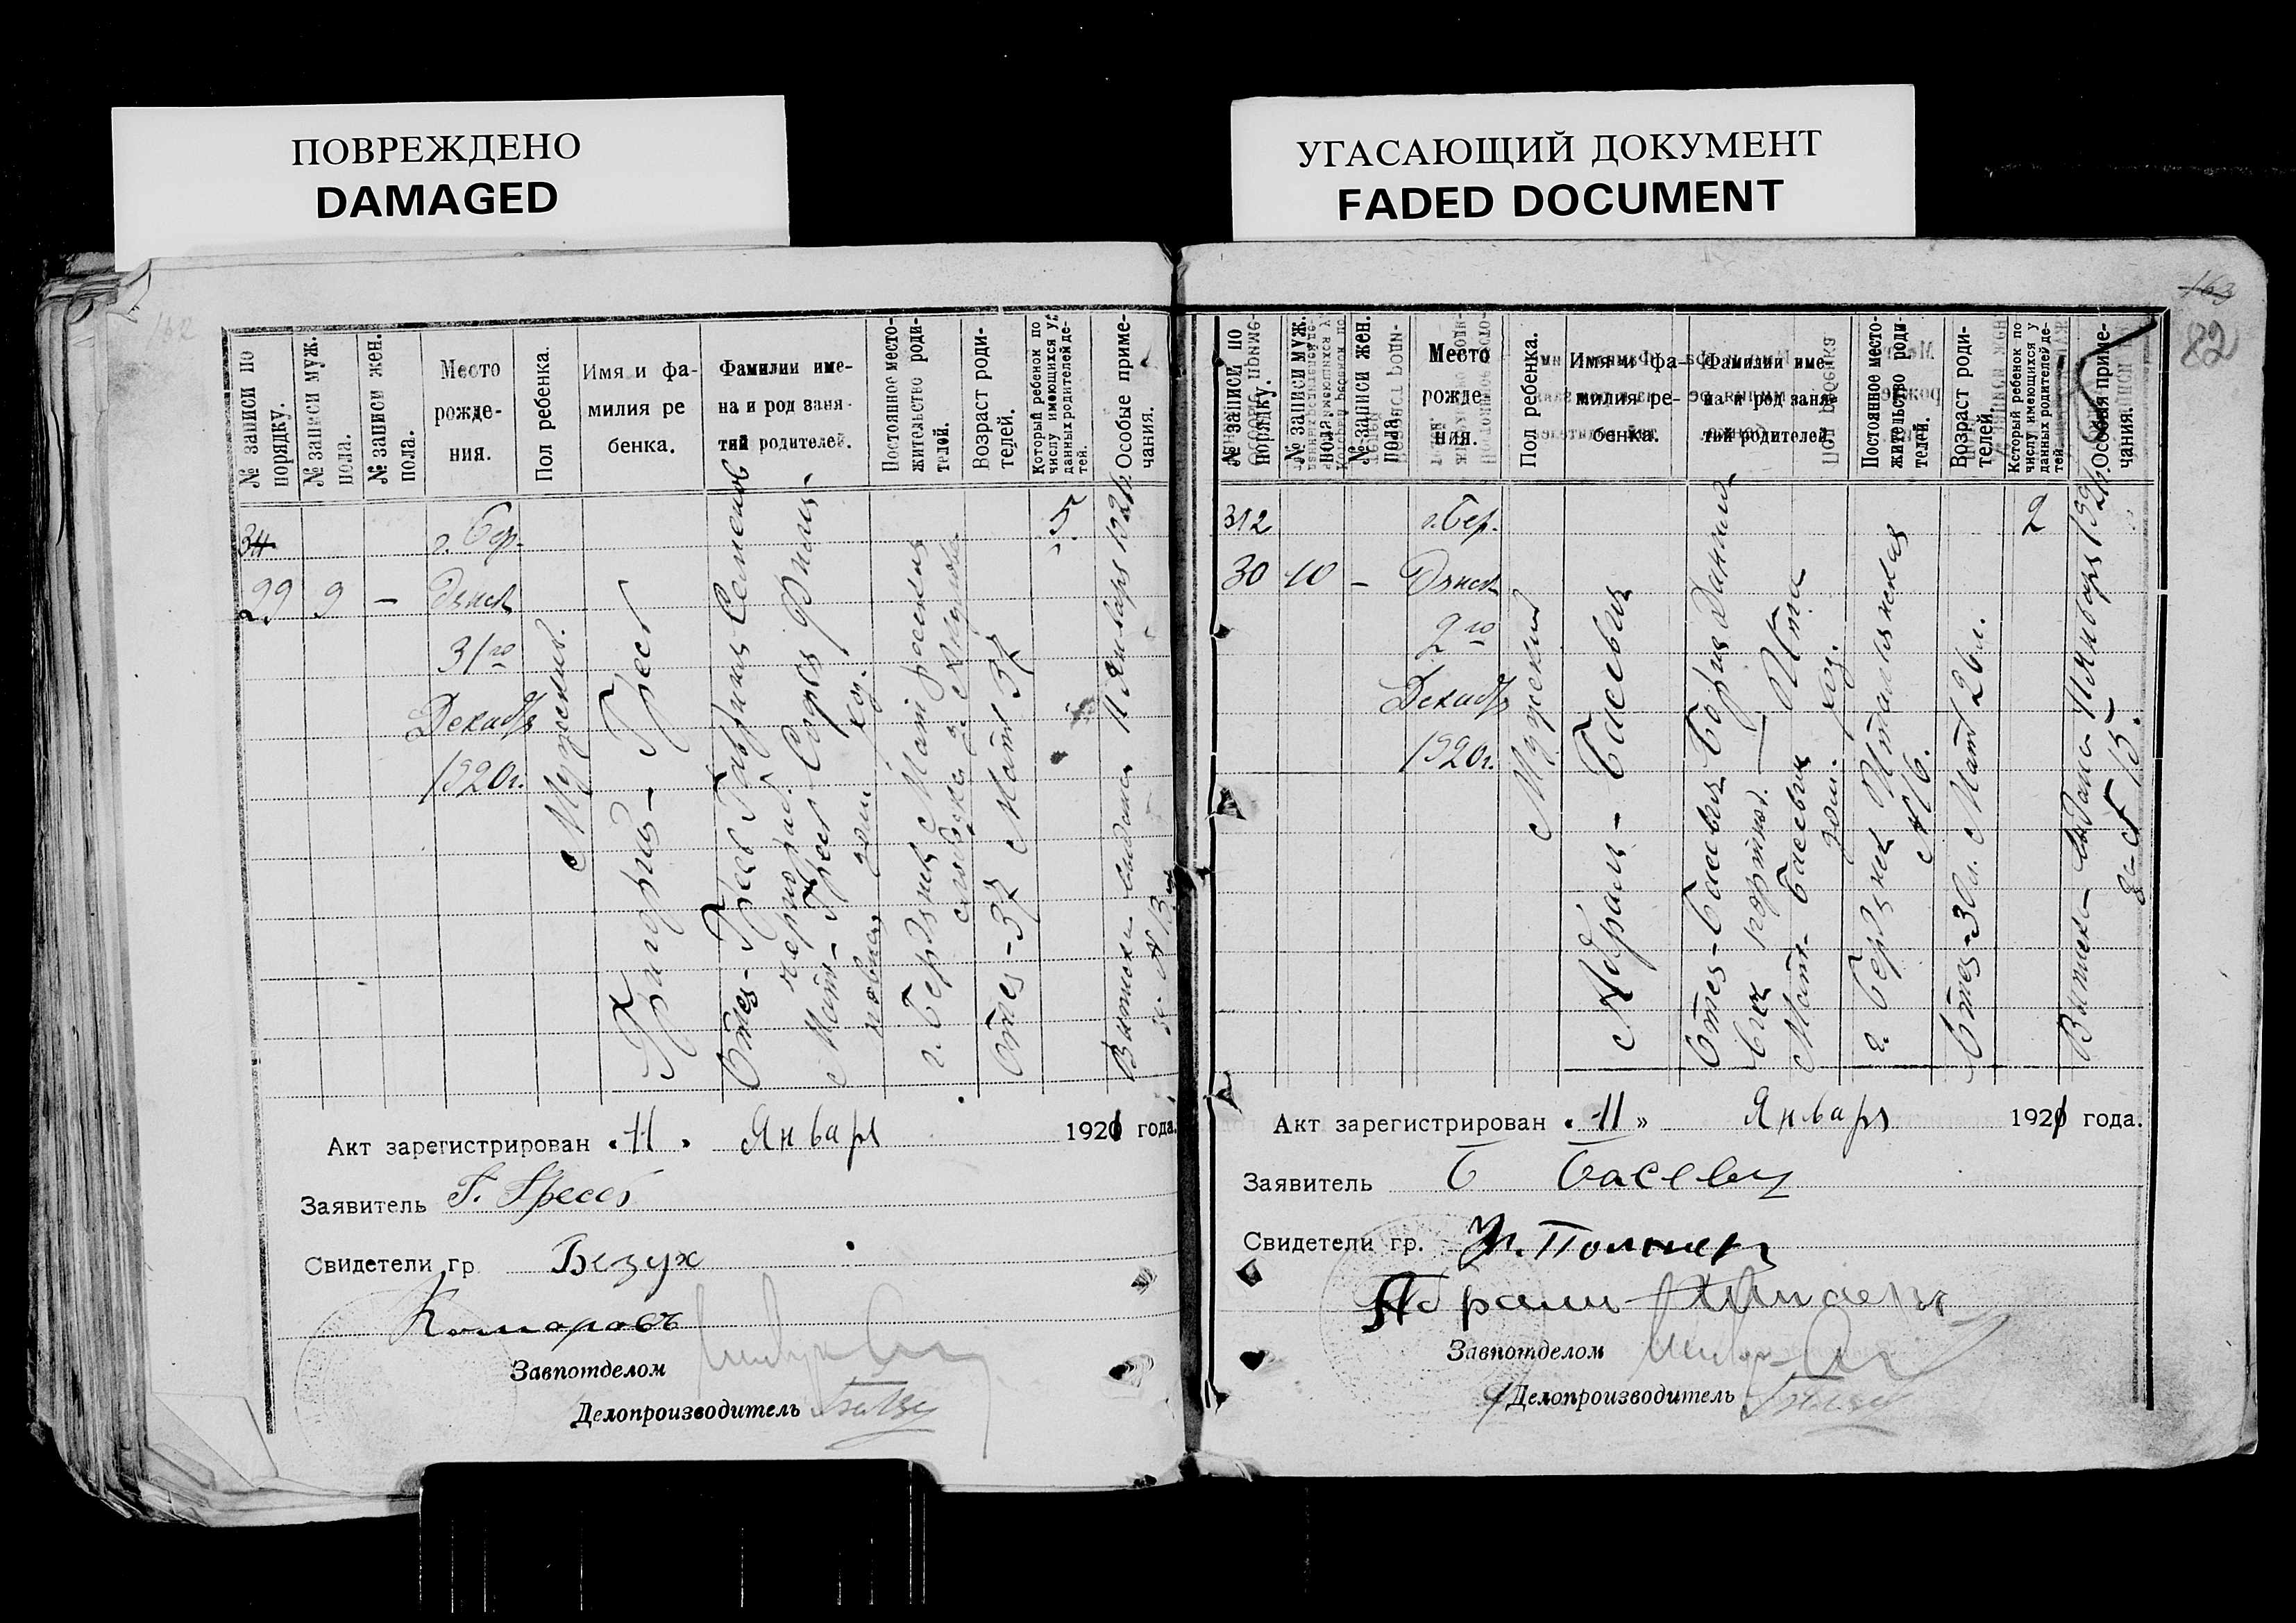 ПОВРЕЖДЕНО
DAMAGED
УГАСАЮЩИЙ ДОКУМЕНТ
FADED DOCUMENT
162
№ записи по порядку.
№ записи муж. пола.
№ записи жен. пола.
Место рожде-
ния.
Пол ребенка.
Имя и фа-
милия ре
бенка.
Фамилии име-
на и род заня-
тий родителей.
Постоянное место-
жительство роди-
телей.
Возраст роди-
телей.
Который ребенок по
числу имеющихся у
данных родителей де-
тей.
Особые приме-
чания.
34
29
9
–
г. Бер-
дянск
31го
Декабр
1920г.
Мужеский.
Григорий – Гресс
Отец – Гресс Гавриил Семенов
Мать – Гресс Софья Филип-
повна, дом. хоз.
г. Бердянск
Отец – 37 Мать 37
5
Выписка выдана 11 Января 1921г.
за № 13
Акт зарегистрирован „ 11 „ Январь 1921 года.
Заявитель Г. Гресс
Свидетели гр Безух
Комаровъ
Завпотделом
Делопроизводитель
163
82
№ записи по
порядку.
№ записи муж.
пола
№ записи жен.
пола
Место
рожде
ния.
Пол ребенка.
Имя и фа-
милия ре-
бенка.
Фамилии име-
на и род заня-
тий родителей.
Постоянное место-
жительство роди-
телей.
Возраст роди-
телей.
Который ребенок по
числу имеющихся у
данных родителей де-
тей.
Особыя приме-
чания.
312
30
10
–
г. Бер-
дянск
2го
Декабр
1920г.
Мужеский
Абрам – Басевич
Отец – Басевич Борис Данило-
вич портной.
Мать – Басевич Ита
дом. хоз.
г. Бердянск Итальянская
№ 6.
Отец – 30 л. Мать 26 л.
2
Выписка выдана 11 Января 1921г.
за № 15.
Акт зарегистрирован „ 11 „ Январь 1921 года.
Заявитель Б Басевич
Свидетели гр.
Абрам
Завпотделом
Делопроизводитель